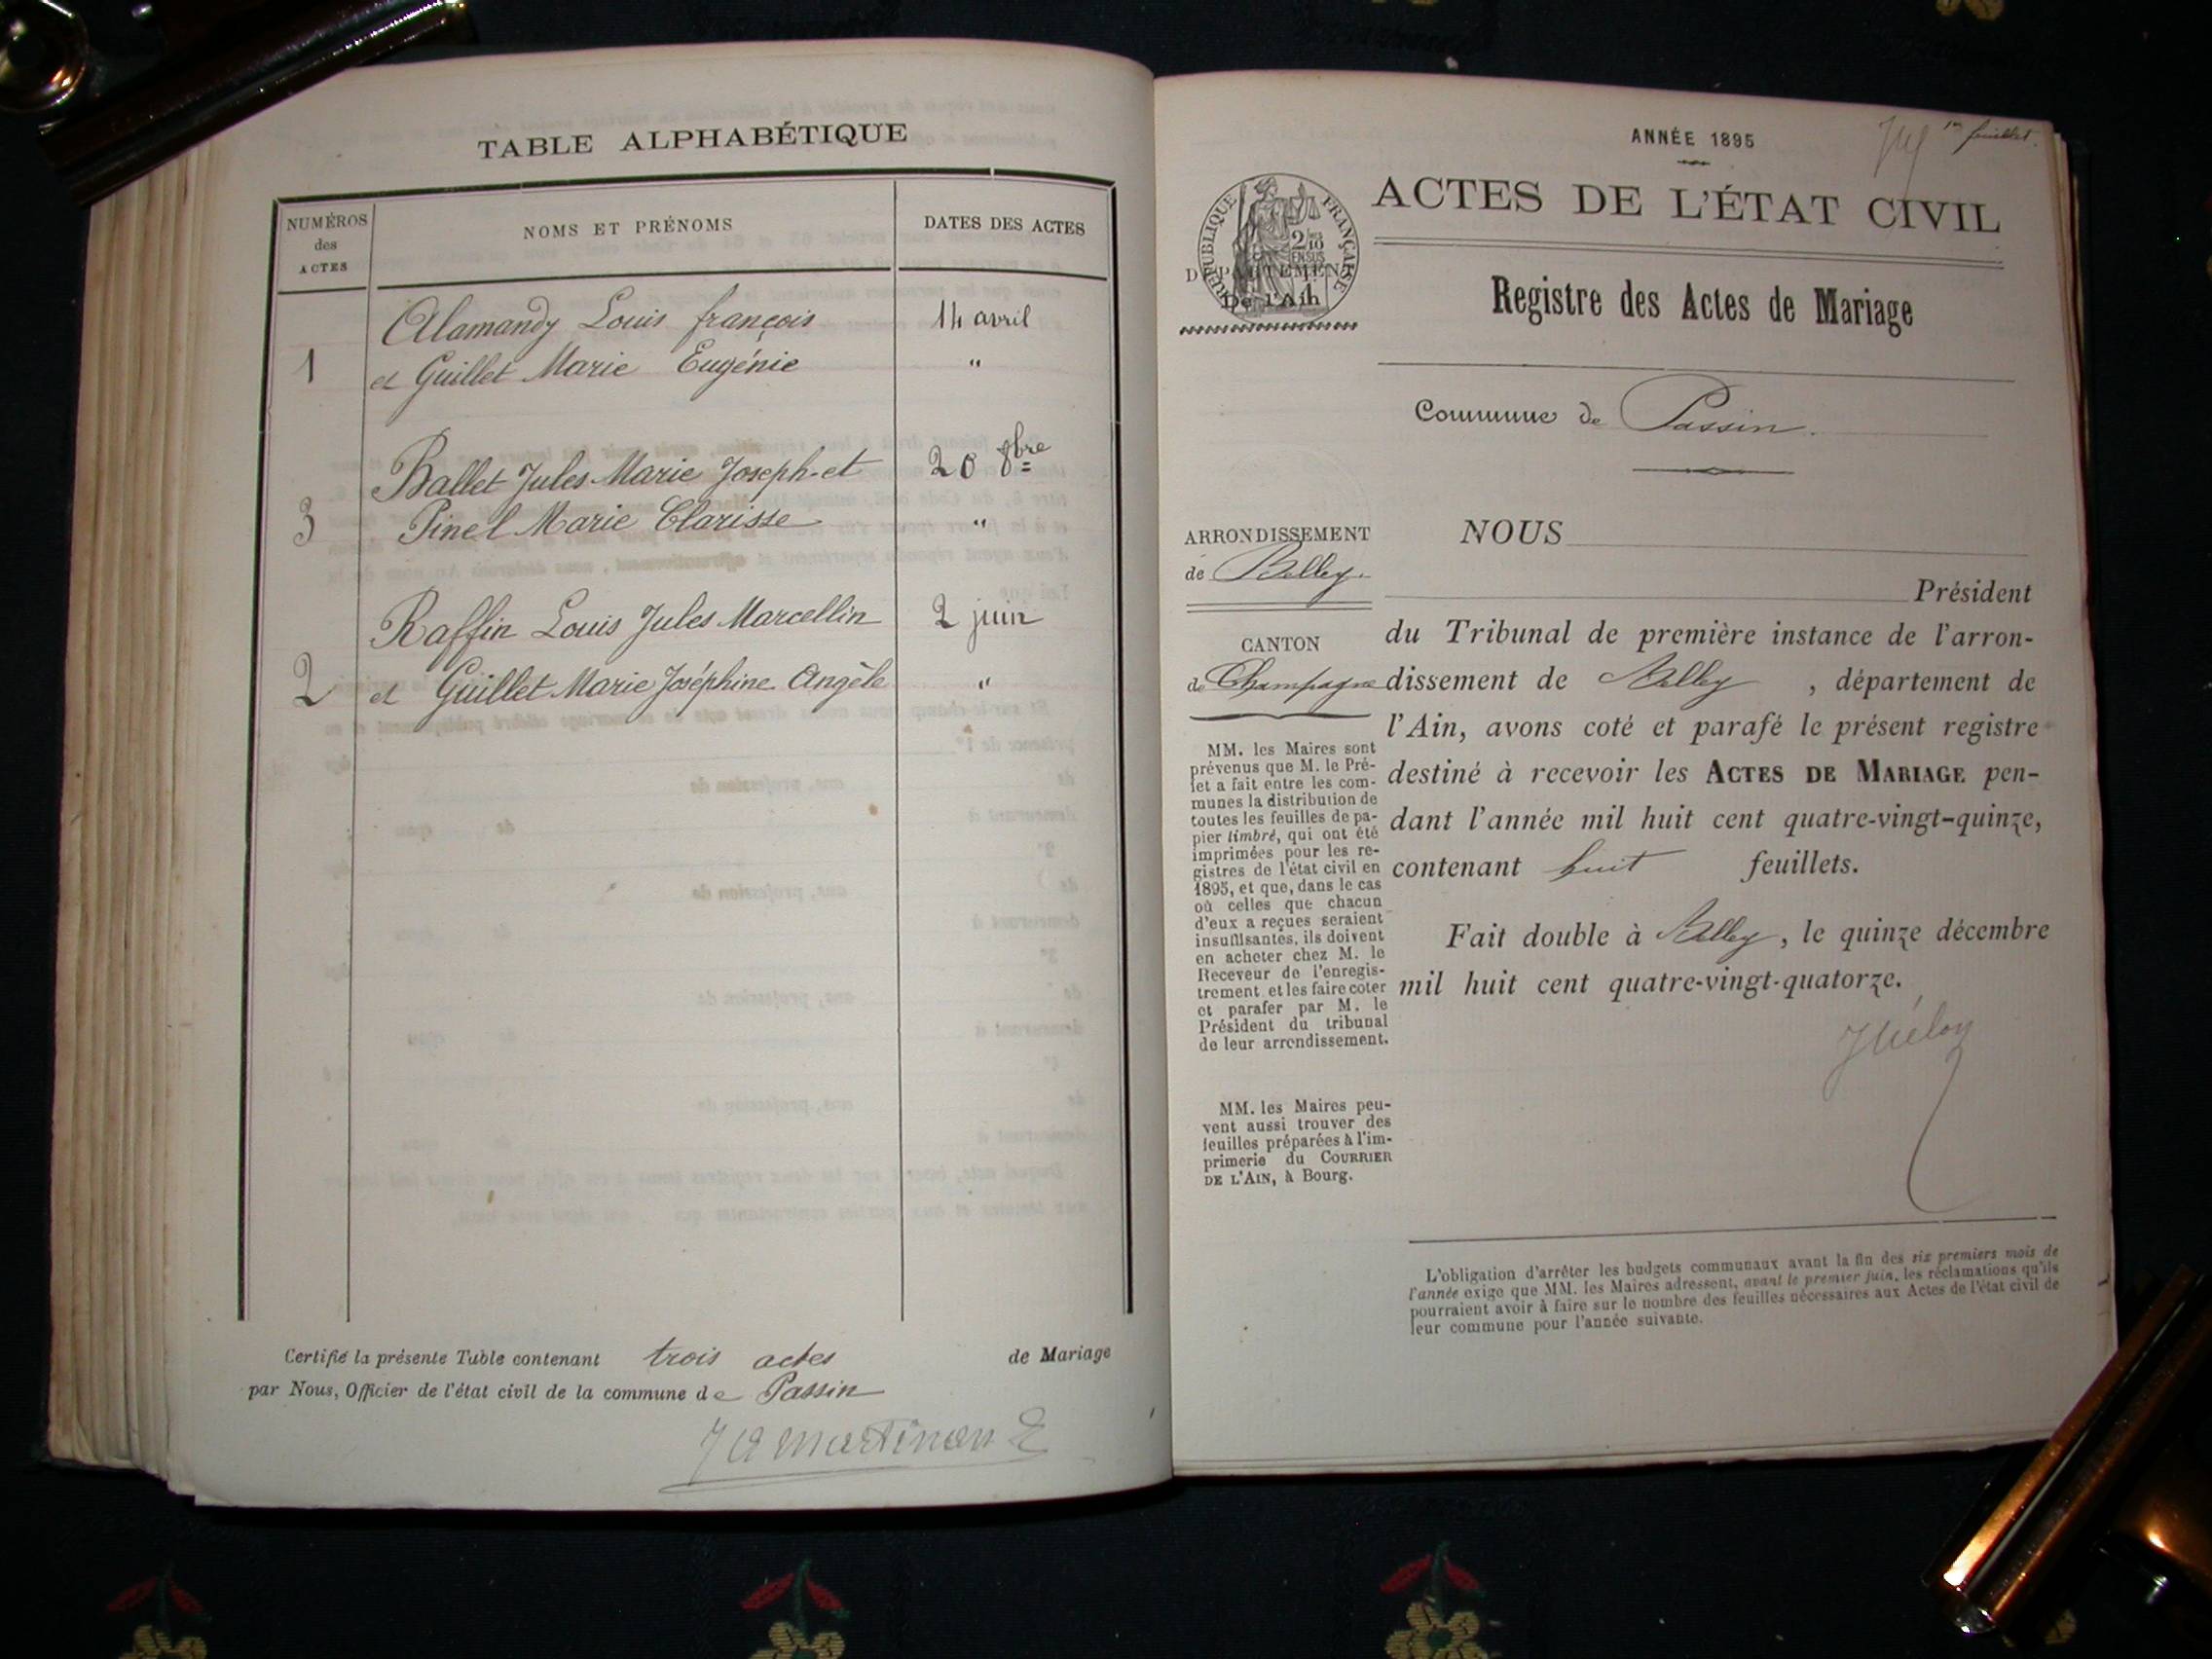 TABLE ALPHABÉTIQUE
NUMÉROS
des
ACTES
NOMS ET PRÉNOMS
DATES DES ACTES
Alamandy Louis françois 14 avril
1 et Guillet Marie Eugénie "
Ballet Jules Marie Joseph et 20 8bre
3 Pinel Marie Clarisse "
Raffin Louis Jules Marcellin 2 juin
2 et Guillet Marie Joséphine Angèle "
Certifié la présente Table contenant trois actes de Mariage
par Nous, Officier de l'état civil de la commune de Passin
martinand
ANNÉE 1895
1er feuillet.
ACTES DE L'ÉTAT CIVIL
RÉPUBLIQUE FRANÇAISE
2/10
EN SUS
DÉPARTEMENT
De l'Ain
Registre des Actes de Mariage
Commune de Passin.
ARRONDISSEMENT
de Belley.
CANTON
de Champagne
MM. les Maires sont
prévenus que M. le Pré-
fet a fait entre les com-
munes la distribution de
toutes les feuilles de pa-
pier timbré, qui ont été
imprimées pour les re-
gistres de l'état civil en
1895, et que, dans le cas
où celles que chacun
d'eux a reçues seraient
insuffisantes, ils doivent
en acheter chez M. le
Receveur de l'enregis-
trement et les faire coter
et parafer par M. le
Président du tribunal
de leur arrondissement.
MM. les Maires peu-
vent aussi trouver des
feuilles préparées à l'im-
primerie du COURRIER
DE L'AIN, à Bourg.
NOUS
Président
du Tribunal de première instance de l'arron-
dissement de Belley , département de
l'Ain, avons coté et parafé le présent registre
destiné à recevoir les ACTES DE MARIAGE pen-
dant l'année mil huit cent quatre-vingt-quinze,
contenant huit feuillets.
Fait double à Belley, le quinze décembre
mil huit cent quatre-vingt-quatorze.
L'obligation d'arrêter les budgets communaux avant la fin des six premiers mois de
l'année exige que MM. les Maires adressent, avant le premier juin, les réclamations qu'ils
pourraient avoir à faire sur le nombre des feuilles nécessaires aux Actes de l'état civil de
leur commune pour l'année suivante.